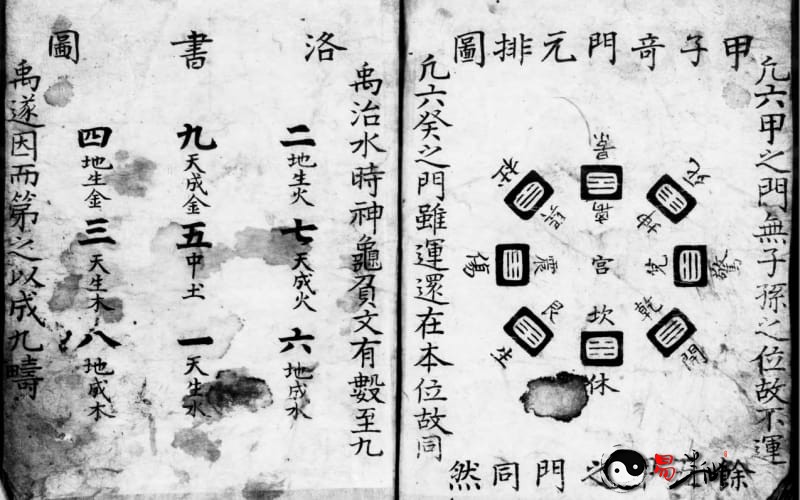 甲子竒門元排圖
凢六甲之門無子孫之位故不運
景
離
死
坤
驚
兌
開
乾
休
坎
生
艮
傷
震
杜
巽
宮
凢六癸之門雖運還在本位故同
餘
之門同然
易
洛書圖
禹治水時神龜負文有數至九
二
地生火
七
天成火
六
地成水
九
天成金
五
中土
一
天生水
四
地生金
三
天生木
八
地成木
禹遂因而第之以成九疇